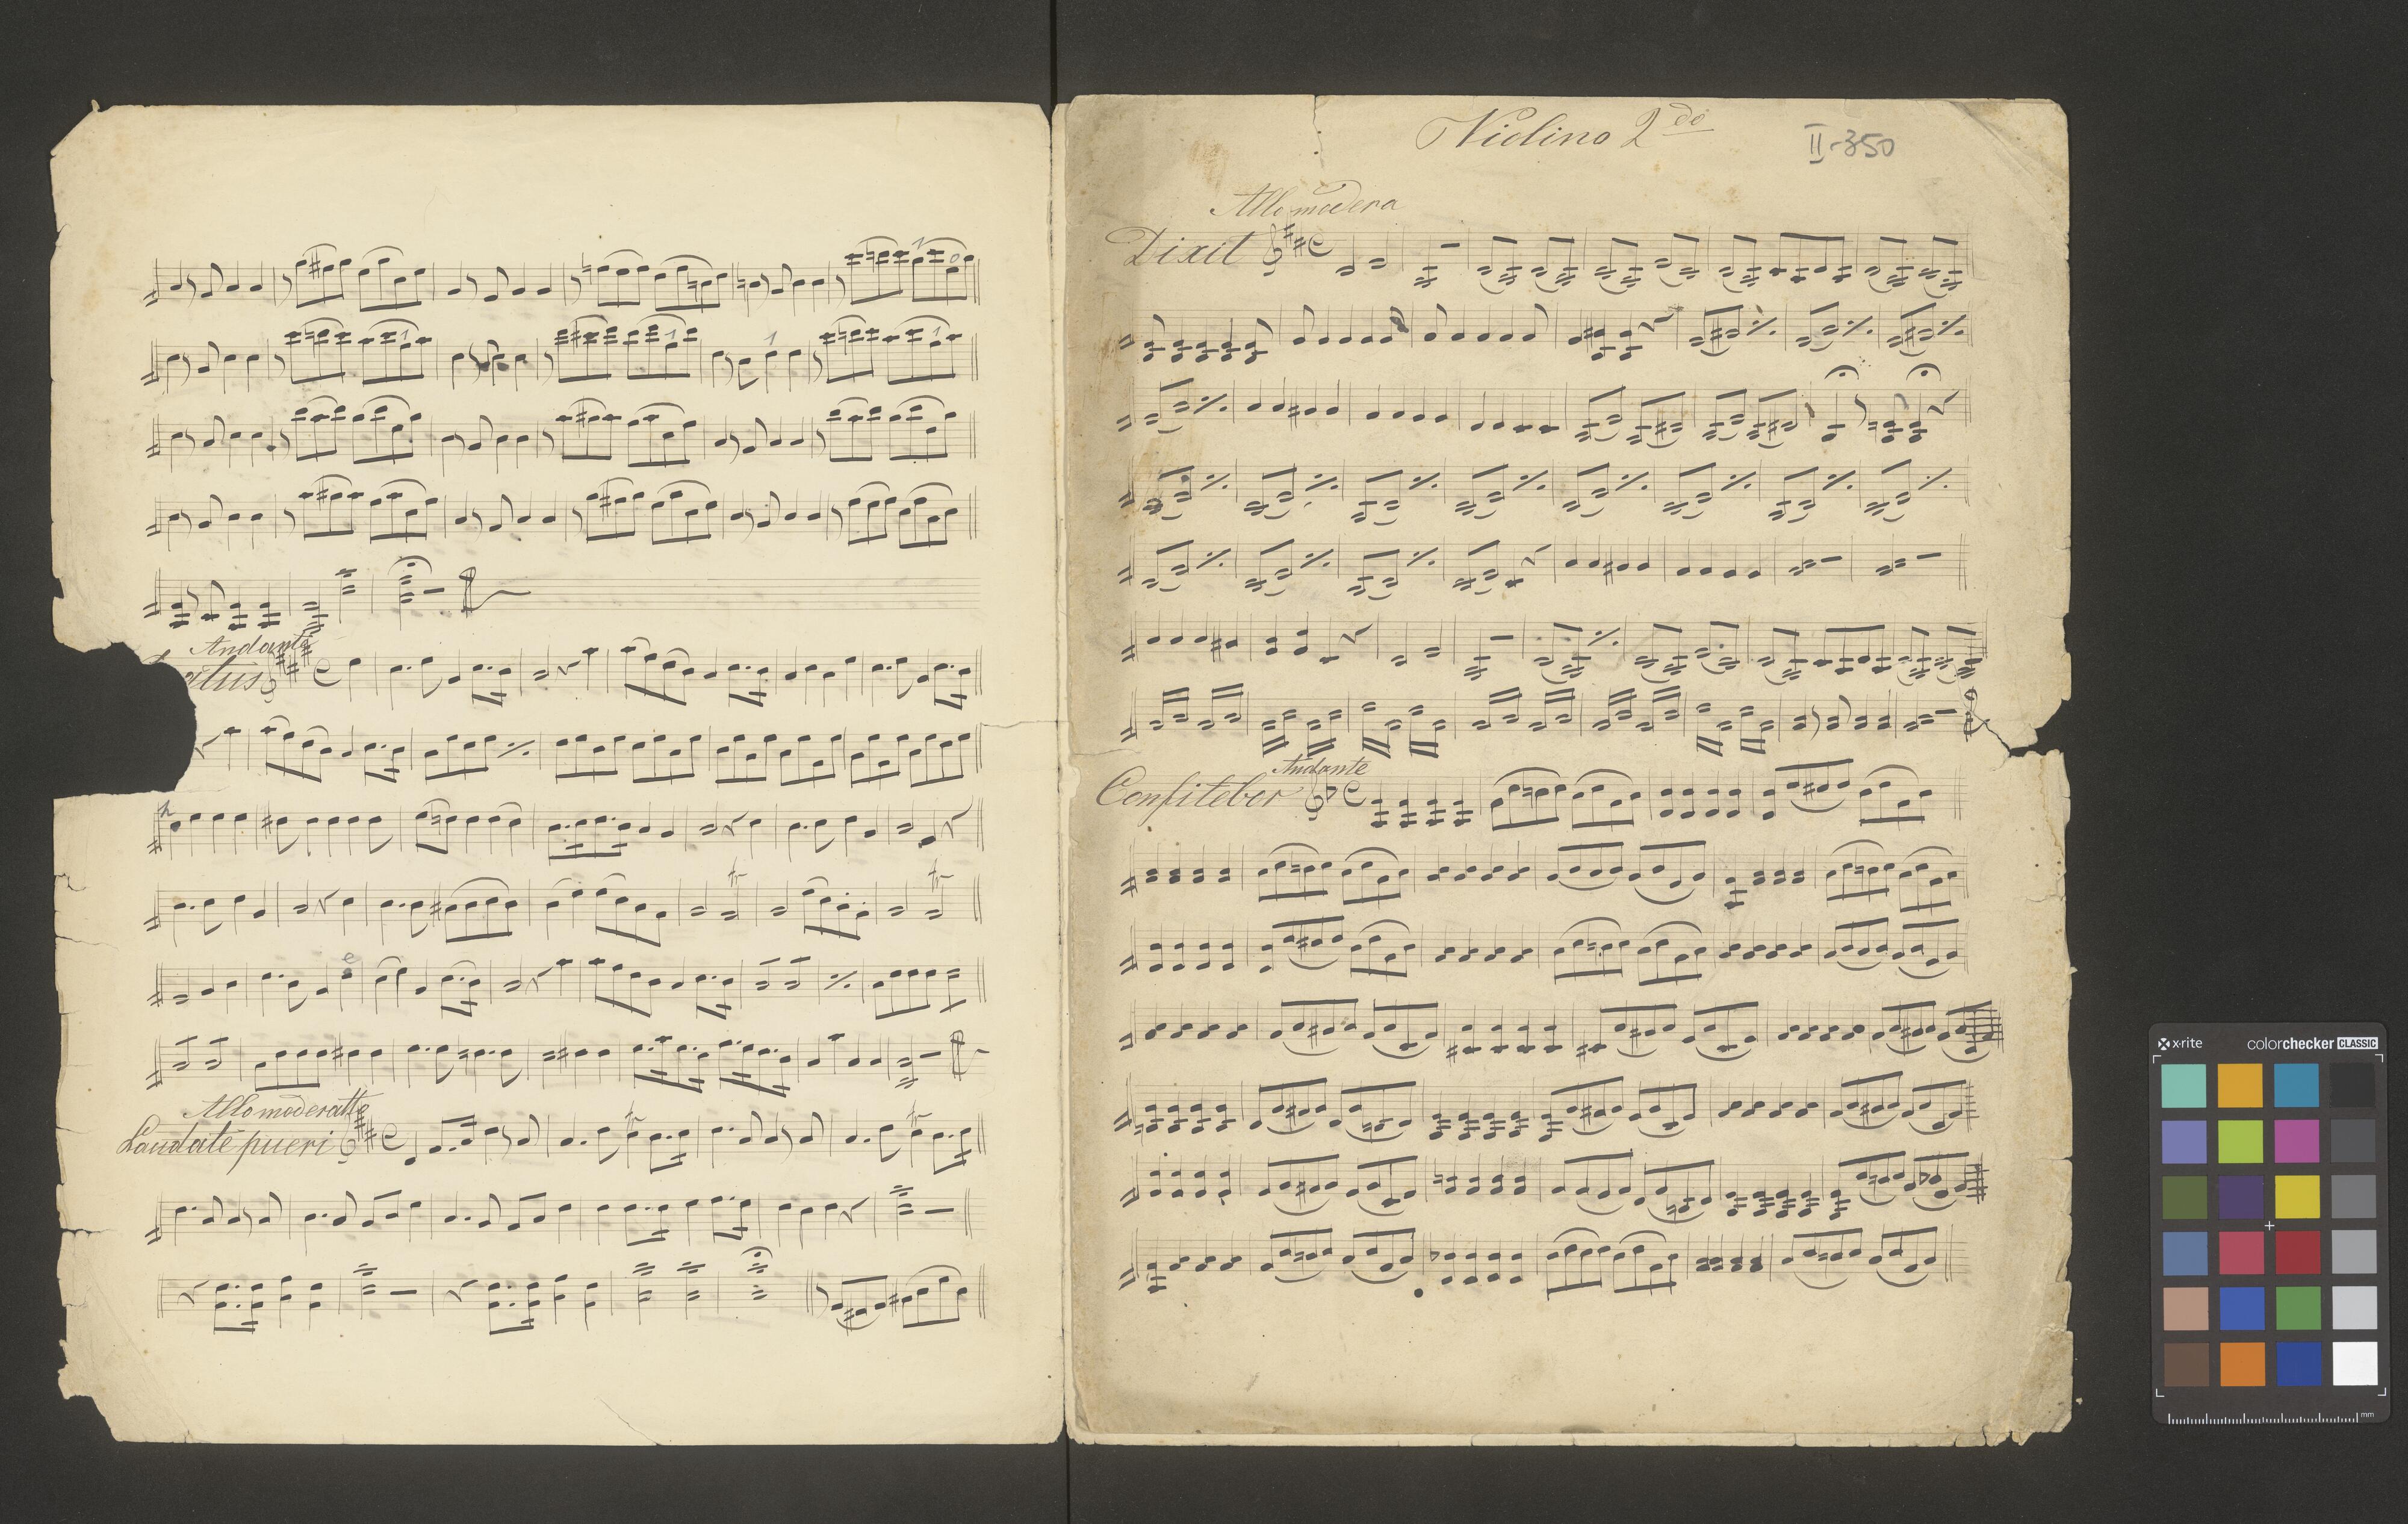 Andante
atus
Allo moderatto
Laudate pueri
Violino 2do
II-350
Allo modera
Dixit
Andante
Confitebor
x-rite
colorchecker CLASSIC
mm